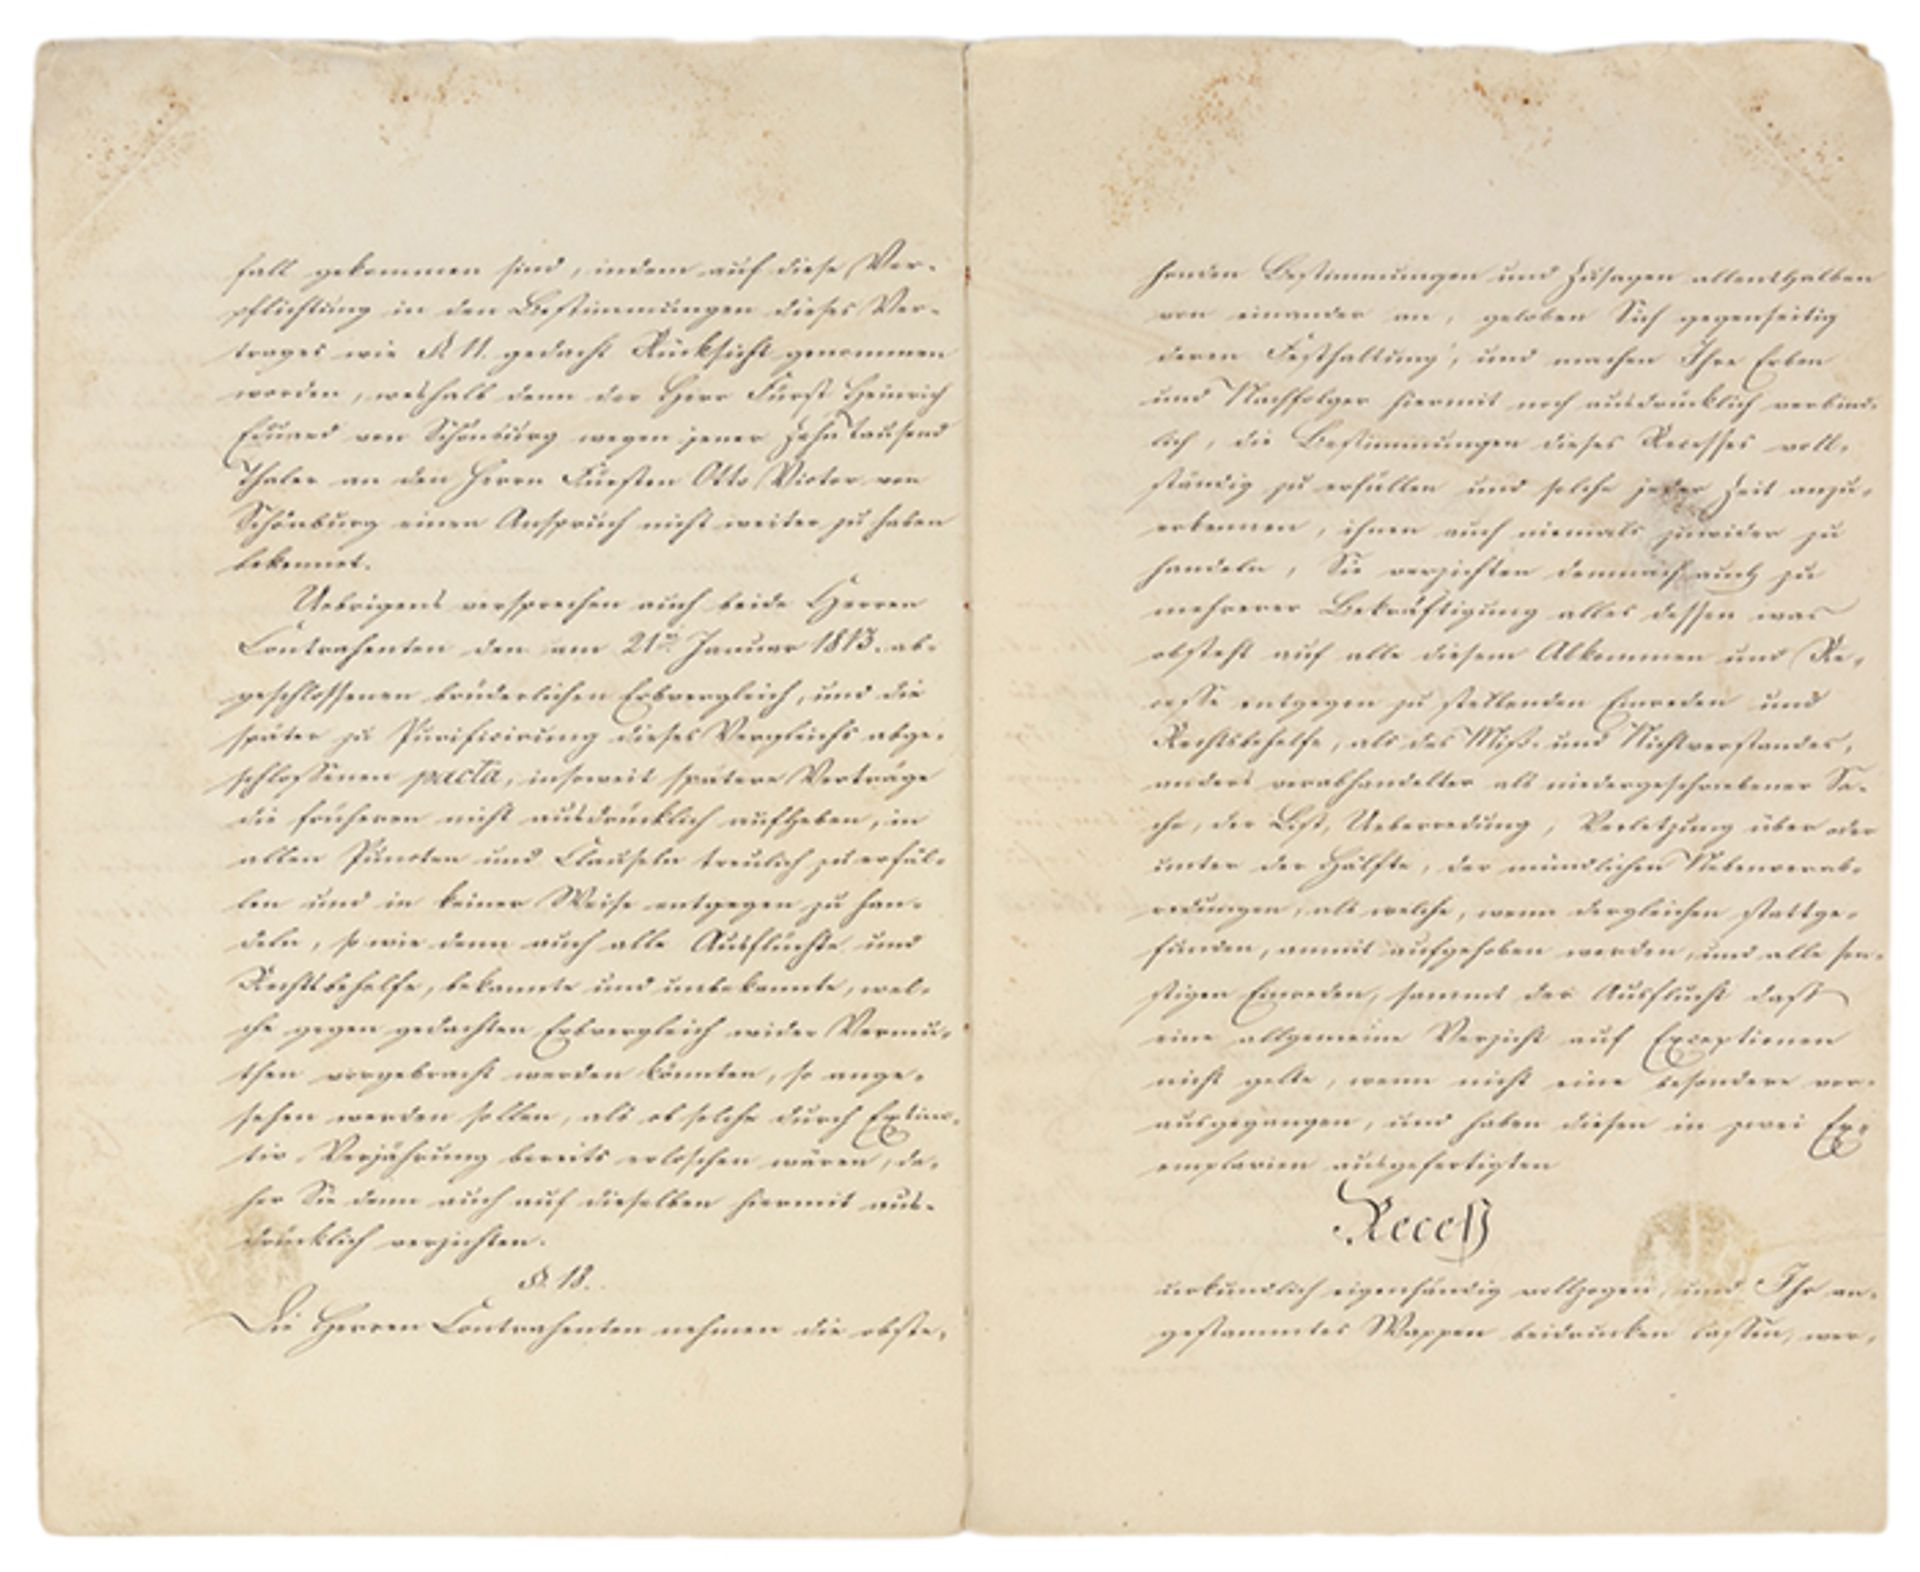 fall gekommen sind, indem auf diese Ver-
pflichtung in den Bestimmungen dieses Ver-
trages wie §. 11. gedacht Rücksicht genommen
worden, weshalb denn der Herr Fürst Heinrich
Eduard von Schönburg wegen jener Zehn tausend
Thaler an den Herrn Fürsten Otto Victor von
Schönburg einen Anspruch nicht weiter zu haben
bekennet.
Uebrigens versprechen auch beide Herren
Contrahenten den am 21n Januar 1813. ab-
geschlossenen brüderlichen Erbvergleich, und die
später zu Purificirung dieses Vergleichs abge-
schlossenen pacta, insoweit spätere Verträge
die früheren nicht ausdrücklich aufheben, in
allen Puncten und Clauseln treulich zu erfül-
len und in keiner Weise entgegen zu han-
deln, so wie denn auch alle Ausflüchte und
Rechtsbehelfe, bekannte und unbekannte, wel-
che gegen gedachten Erbvergleich wider Vermu-
then vorgebracht werden könnten, so ange-
sehen werden sollen, als ob solche durch Extinc-
tiv-Verjährung bereits erloschen wären, da-
her Sie denn auch auf dieselben hiermit aus-
drücklich verzichten.
§. 18.
Die Herren Contrahenten nehmen die obste-
henden Bestimmungen und Zusagen allenthalben
von einander an, geloben Sich gegenseitig
deren Festhaltung, und machen Ihre Erben
und Nachfolger hiermit noch ausdrücklich verbind-
lich, die Bestimmungen dieses Recesses voll-
ständig zu erfüllen und solche jeder Zeit anzu-
erkennen, ihnen auch niemals zuwider zu
handeln, Sie verzichten demnach auch zu
mehrerer Bekräftigung alles dessen was
obsteht auf alle diesem Abkommen und Re-
cesse entgegen zu stellenden Einreden und
Rechtsbehelfe, als des Miß- und Nichtverstandes,
anders verabhandelter als niedergeschriebener Sa-
che, der List, Ueberredung, Verletzung über oder
unter der Hälfte, der mündlichen Nebenverab-
redungen, als welche, wenn dergleichen stattge-
funden, anmit aufgehoben werden, und alle son-
stigen Einreden, sammt der Ausflucht daß
eine allgemeine Verzicht auf Exceptionen
nicht gelte, wenn nicht eine besondere vor-
ausgegangen, und haben diesen in zwei Ex-
emplarien ausgefertigten
Receß
urkundlich eigenhändig vollzogen, und Ihr an-
gestammtes Wappen beidrucken lassen, wor-